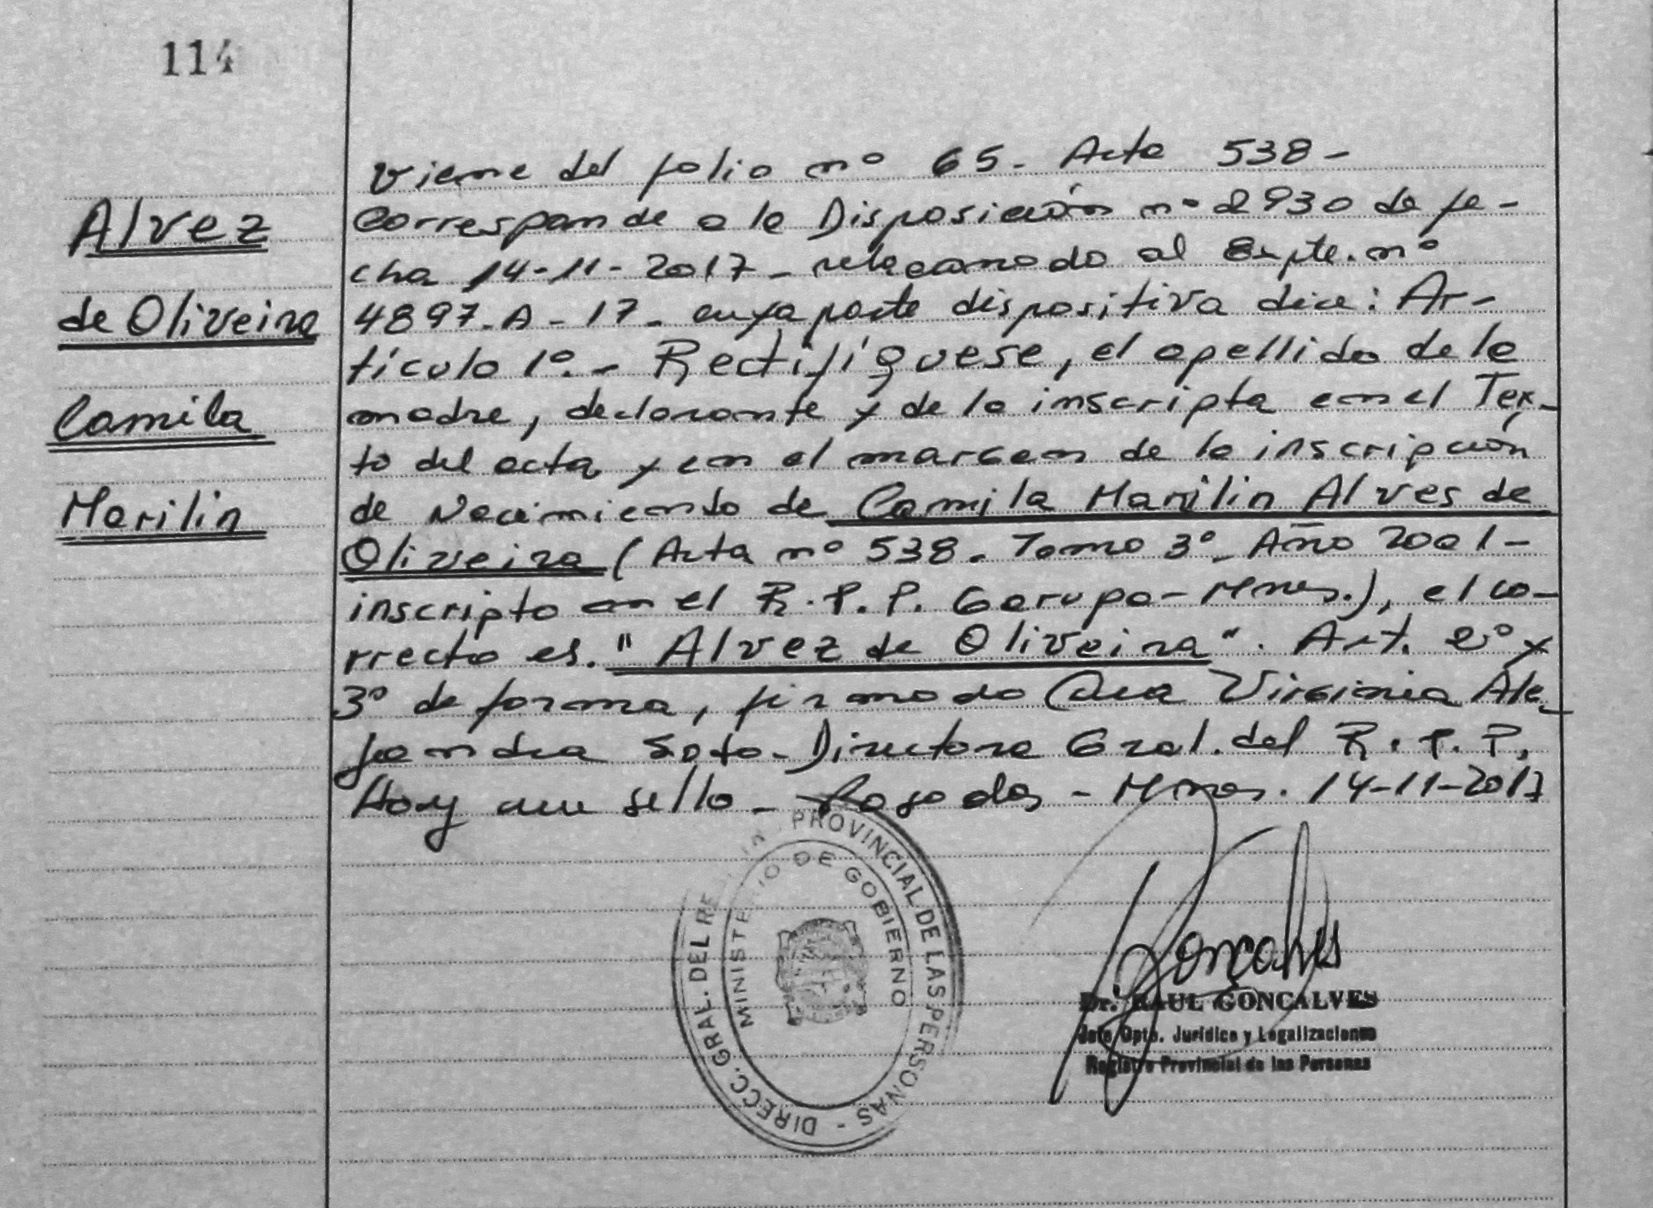 114
Alvez
de Oliveira
Camila
Marilin
Viene del folio nº 65- Acta 538-
Corresponde a la Disposición nº 2930 de fe-
cha 14-11-2017- relacionado al Expte. nº
4897-A-17- cuya parte dispositiva dice: Ar-
tículo 1º.- Rectifíquese, el apellido de la
madre, declarante y de la inscripta en el Tex-
to del acta y en el margen de la inscripción
de Nacimiento de Camila Marilin Alves de
Oliveira (Acta nº 538- Tomo 3º- Año 2001-
inscripto en el R.P.P. Garupa-Mnes.), el co-
rrecto es. "Alvez de Oliveira". Art. 2º y
3º de forma, firmado Virginia Ale-
jandra Soto- Directora Gral. del R.P.P.
Hay un sello- Posadas- Mnes. 14-11-2017
DIRECC. GRAL. DEL PROVINCIAL DE LAS PERSONAS -
MINISTERIO DE GOBIERNO
Gonçalves
Dr. RAUL GONÇALVES
Jefe Dpto. Jurídico y Legalizaciones
Registro Provincial de las Personas